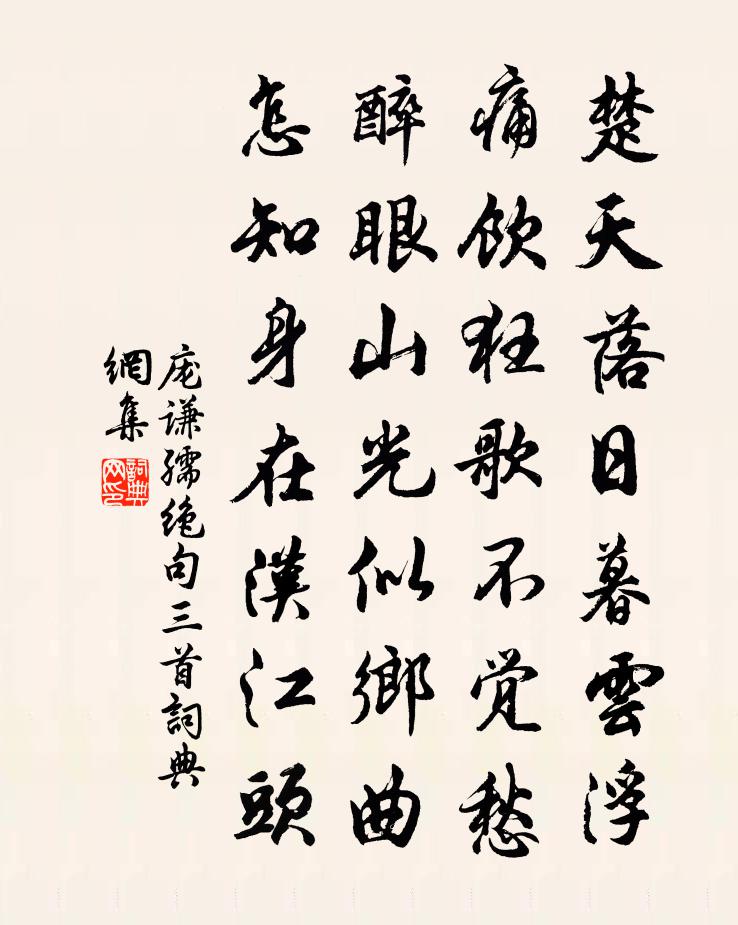 楚天落日暮雲浮
痛飲狂歌不覚愁
醉眼山光似鄉曲
怎知身在漢江頭
庞谦孺绝句三首詞典
網集
詞典
网印